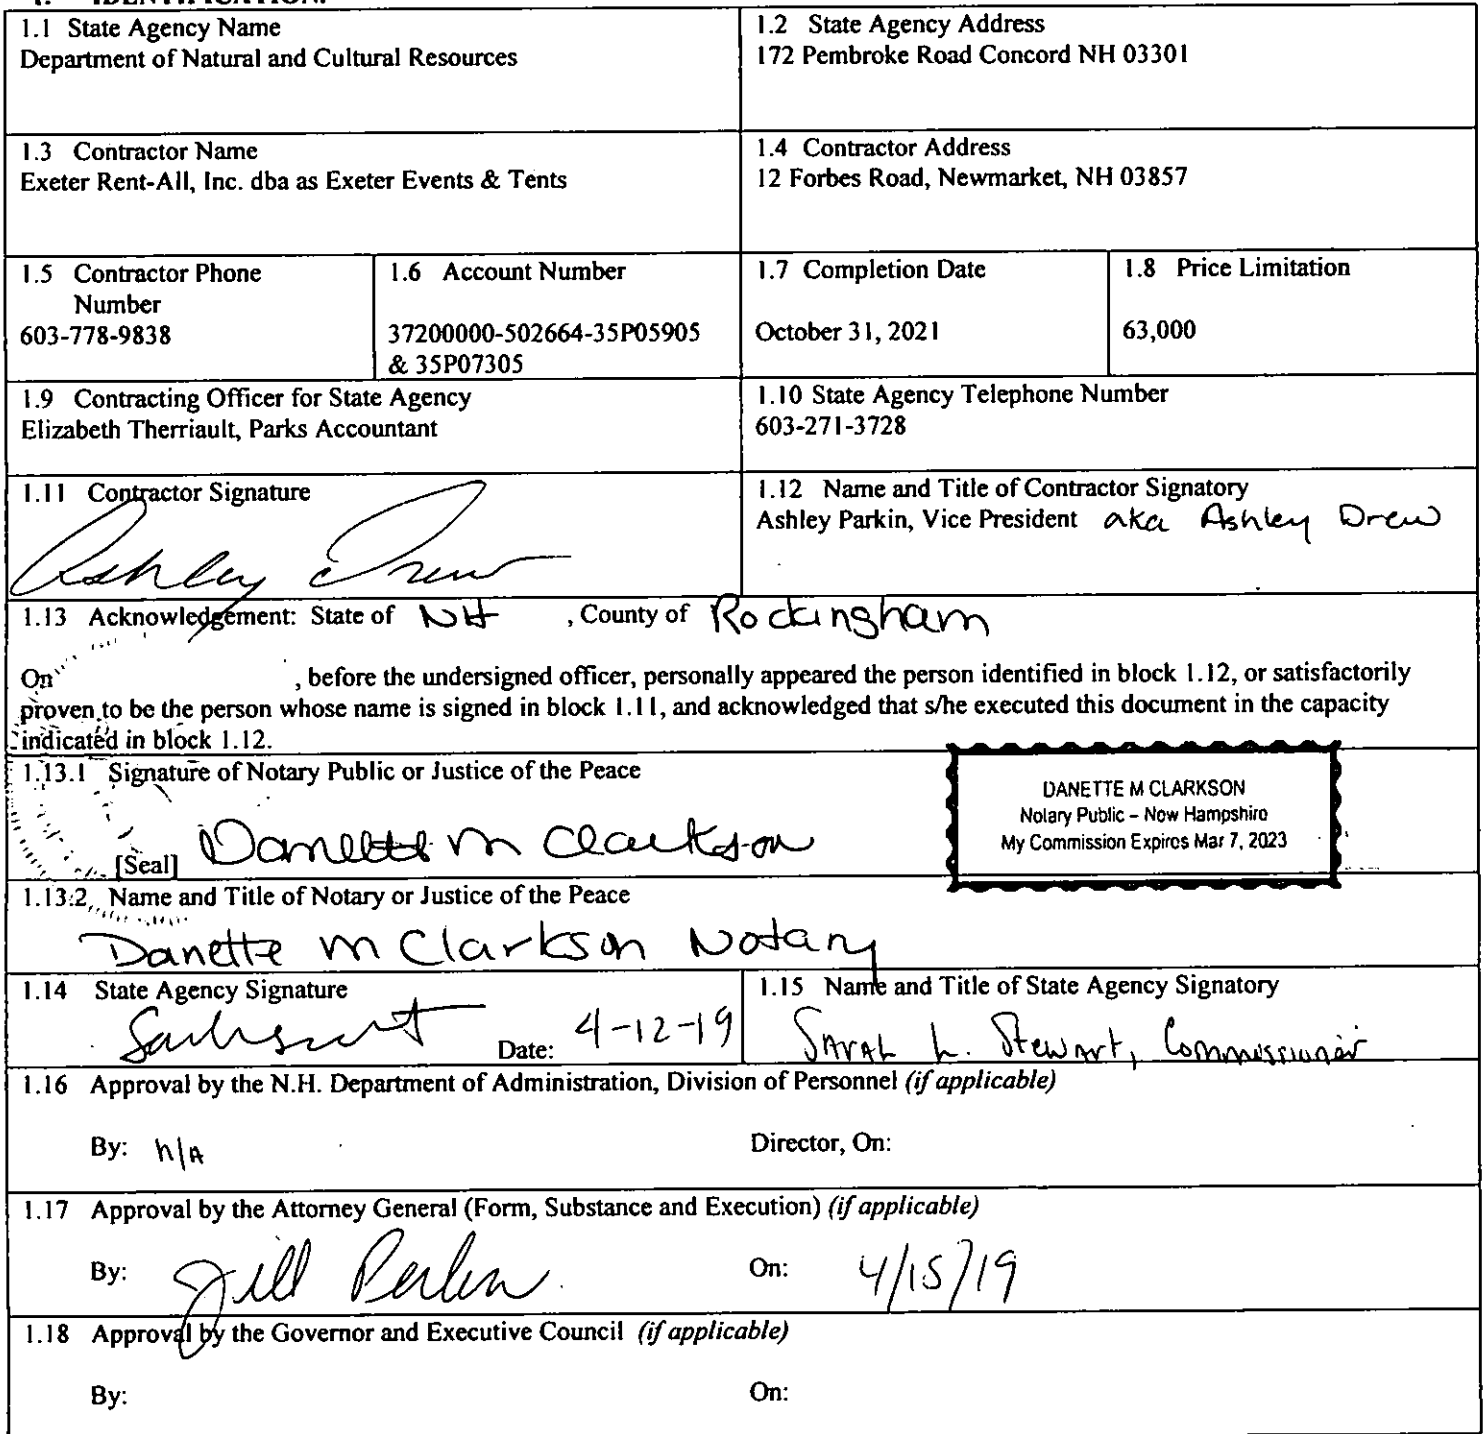 1. IDENTIFICATION.
1.1 State Agency Name
Department of Natural and Cultural Resources
1.2 State Agency Address
172 Pembroke Road Concord NH 03301
1.3 Contractor Name
Exeter Rent-All, Inc. dba as Exeter Events & Tents
1.4 Contractor Address
12 Forbes Road, Newmarket, NH 03857
1.5 Contractor Phone
Number
603-778-9838
1.6 Account Number
37200000-502664-35P05905
& 35P07305
1.7 Completion Date
October 31, 2021
1.8 Price Limitation
63,000
1.9 Contracting Officer for State Agency
Elizabeth Therriault, Parks Accountant
1.10 State Agency Telephone Number
603-271-3728
1.11 Contractor Signature
Ashley Drew
1.12 Name and Title of Contractor Signatory
Ashley Parkin, Vice President aka Ashley Drew
1.13 Acknowledgement: State of NH , County of Rockingham
On , before the undersigned officer, personally appeared the person identified in block 1.12, or satisfactorily
proven to be the person whose name is signed in block 1.11, and acknowledged that s/he executed this document in the capacity
indicated in block 1.12.
1.13.1 Signature of Notary Public or Justice of the Peace
[Seal] Danette M Clarkson
DANETTE M CLARKSON
Notary Public – New Hampshire
My Commission Expires Mar 7, 2023
1.13.2 Name and Title of Notary or Justice of the Peace
Danette M Clarkson Notary
1.14 State Agency Signature
Date: 4-12-19
1.15 Name and Title of State Agency Signatory
Sarah L. Stewart, Commissioner
1.16 Approval by the N.H. Department of Administration, Division of Personnel (if applicable)
By: n/A
Director, On:
1.17 Approval by the Attorney General (Form, Substance and Execution) (if applicable)
By: Jill Perlow
On: 4/15/19
1.18 Approval by the Governor and Executive Council (if applicable)
By:
On: